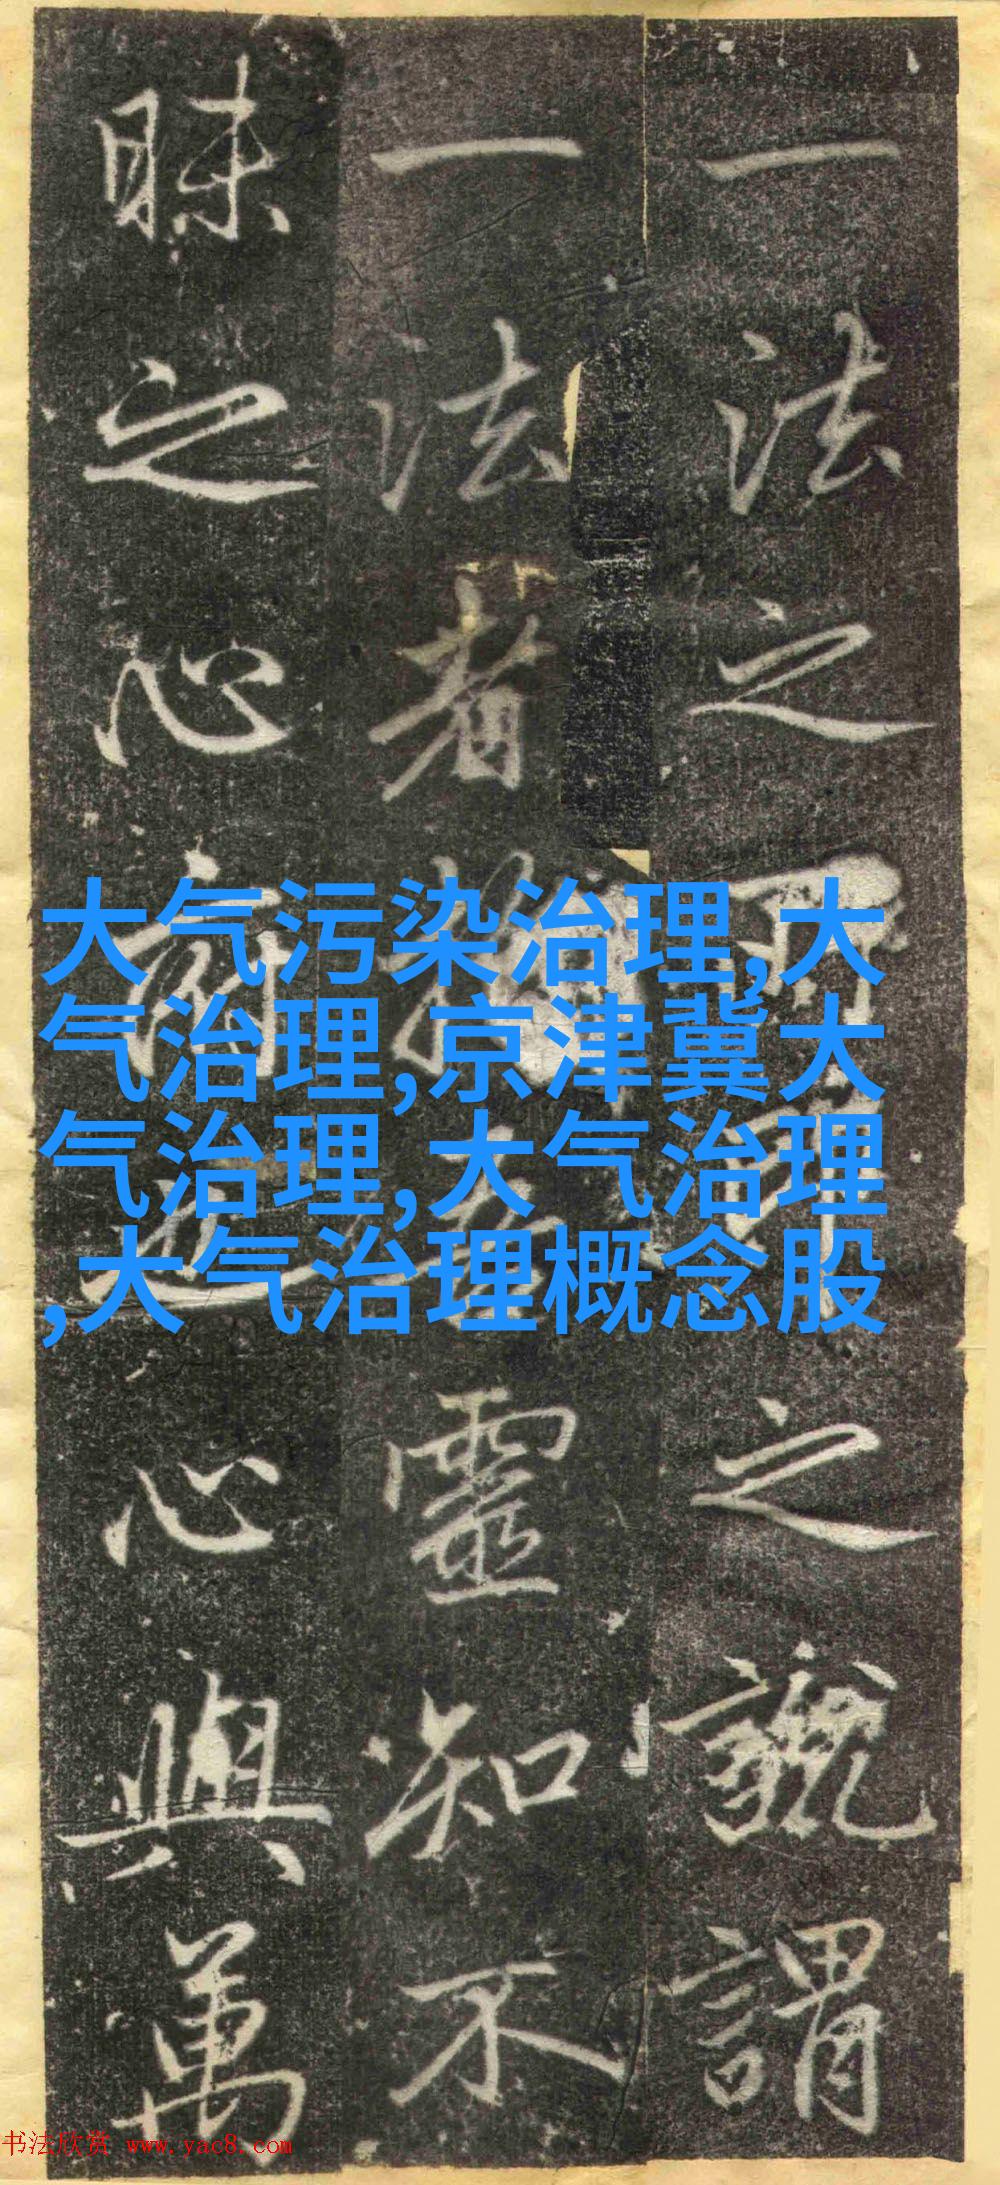 一法之之謂
一法者靈知不
昧之心心與萬
大气污染治理,大
气治理,京津冀大
气治理,大气治理
,大气治理概念股
书法欣赏 www.yac8.com